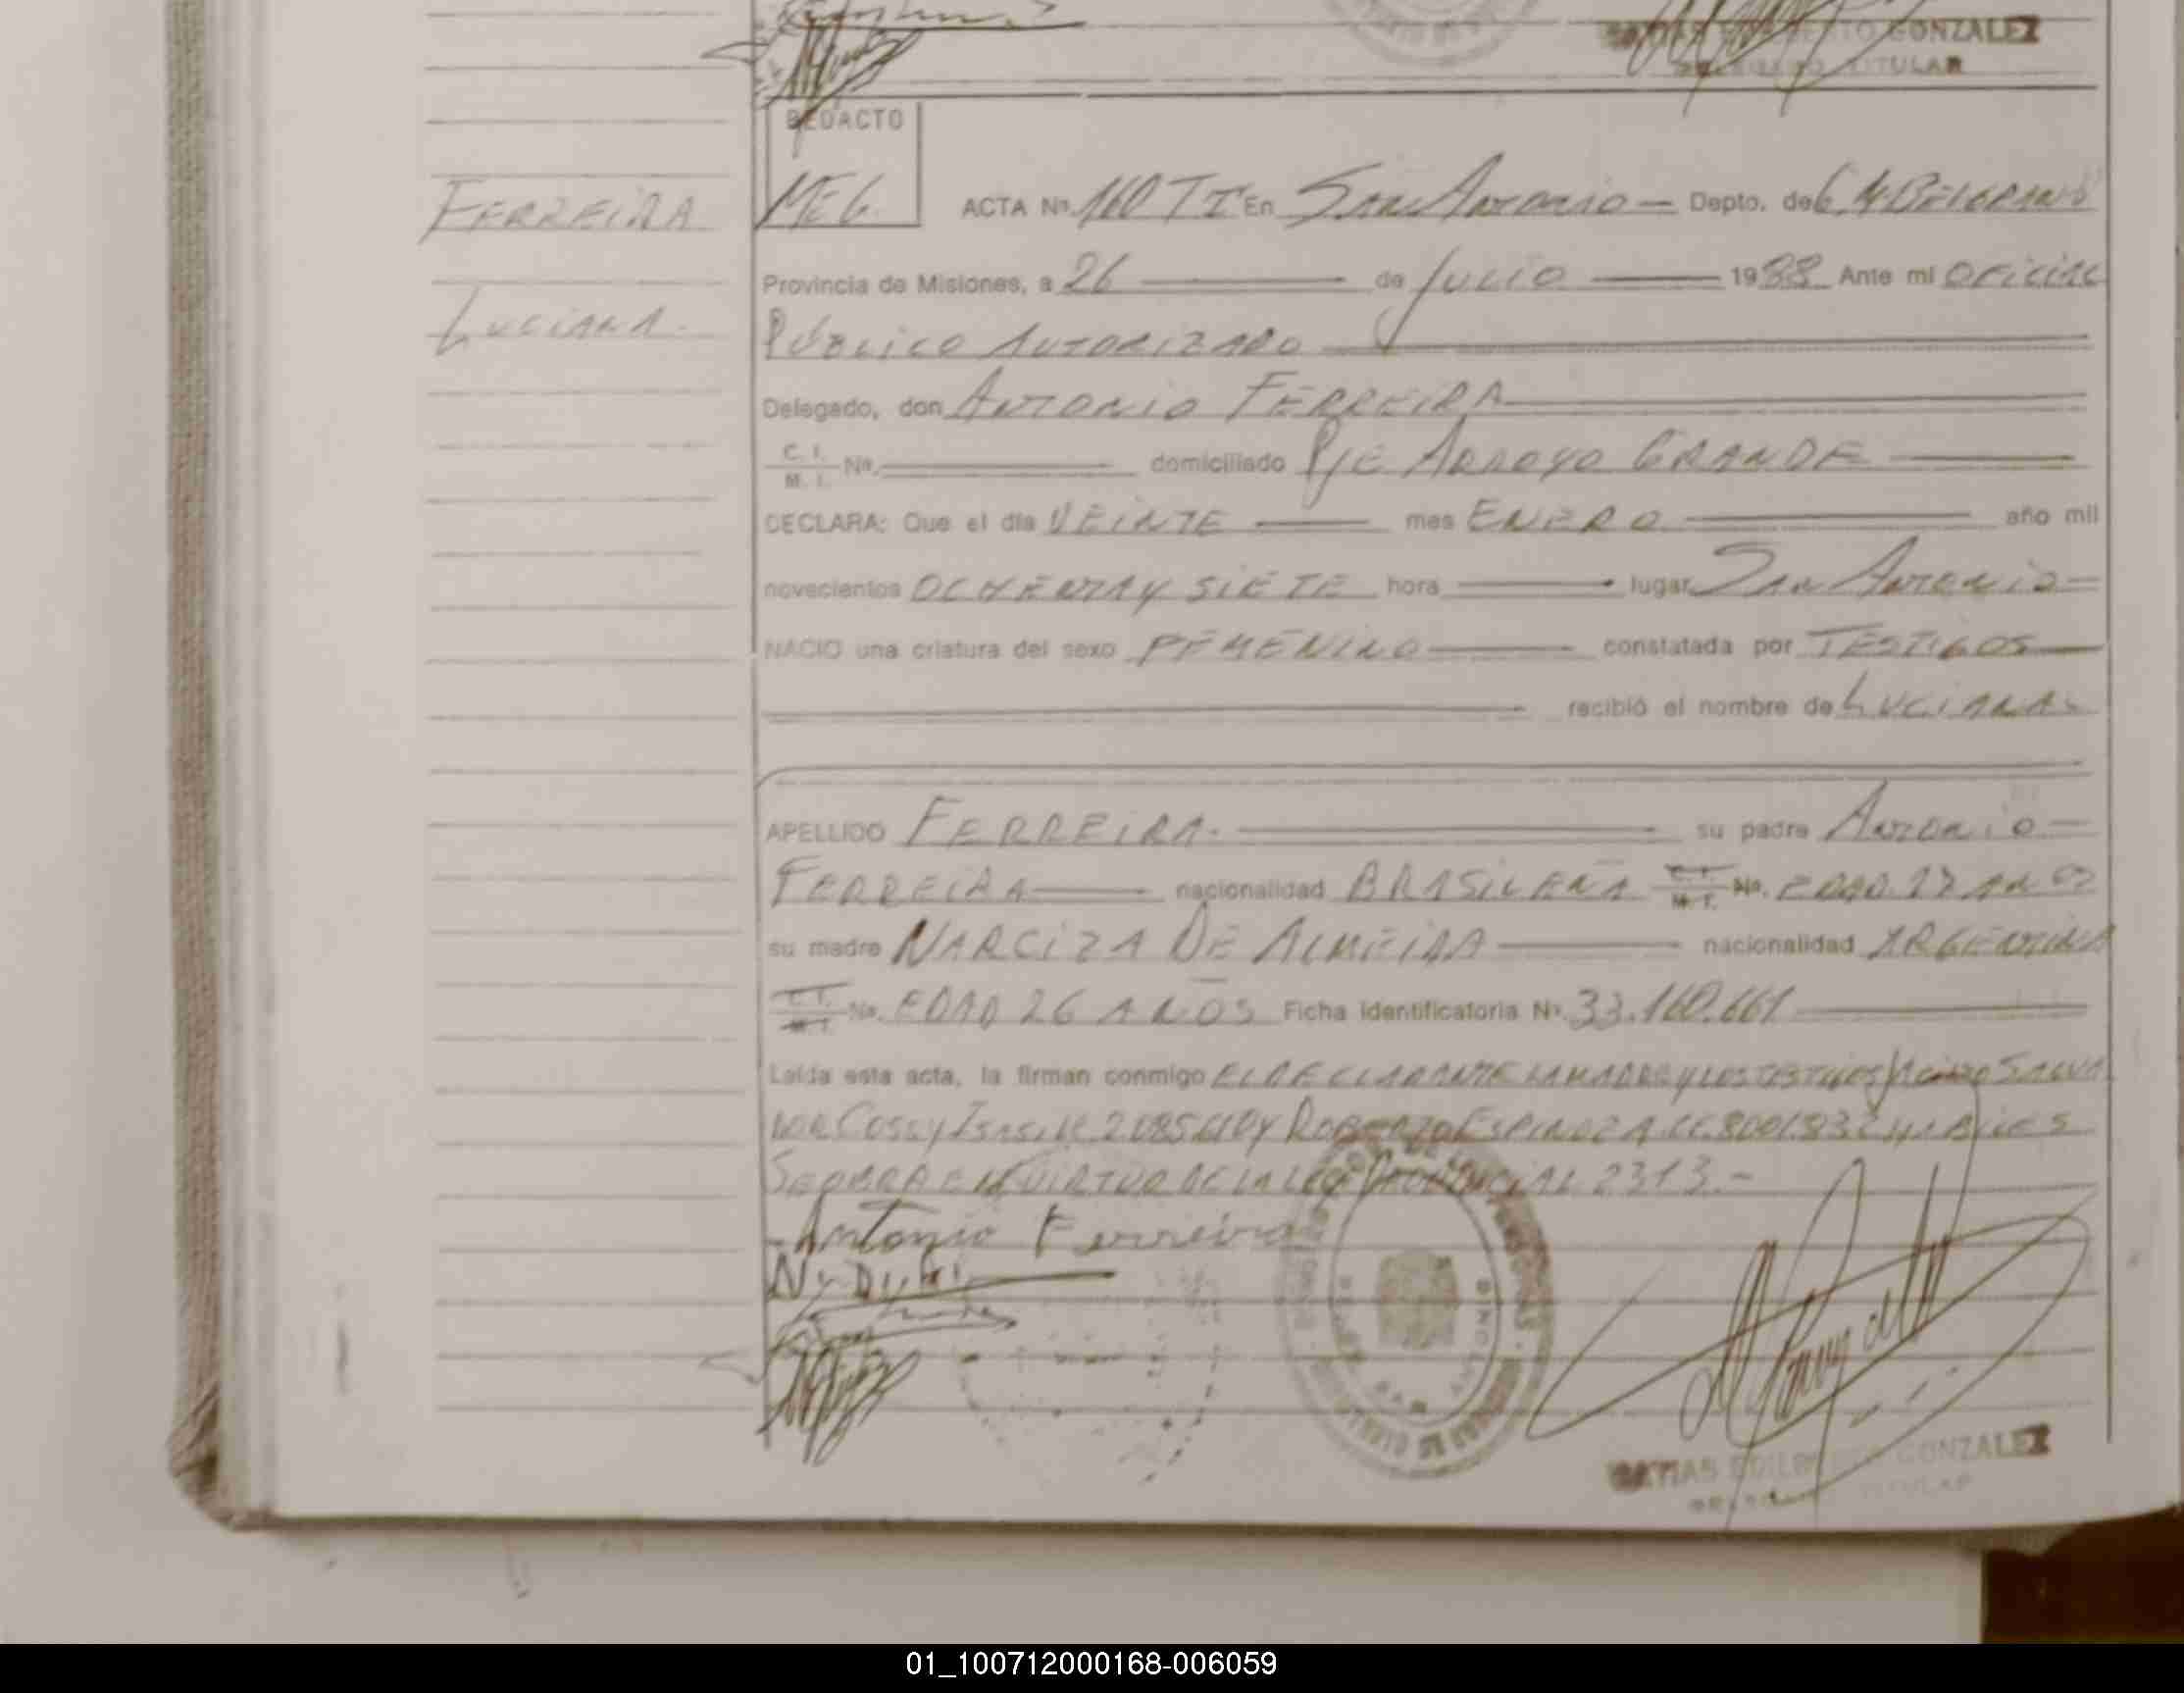 GONZALEZ
TITULAR
REDACTO
FERREIRA
MEG. ACTA Nº. 160 TI En SAN ANTONIO — Depto. de G. M. BELGRANO
Provincia de Misiones, a 26 de JULIO 1988 Ante mi OFICIAL
LUCIANA.
PÚBLICO AUTORIZADO
Delegado, don ANTONIO FERREIRA
C. I. M. I. Nº. domiciliado PJE ARROYO GRANDE
DECLARA: Que el día VEINTE mes ENERO año mil
novecientos OCHENTA Y SIETE hora lugar SAN ANTONIO
NACIO una criatura del sexo FEMENINO constatada por TESTIGOS
recibió el nombre de LUCIANA
APELLIDO FERREIRA. su padre ANTONIO
FERREIRA nacionalidad BRASILEÑA C. I. M. I. Nº. EDAD AÑOS
su madre NARCIZA DE ALMEIDA nacionalidad ARGENTINA
C. I. M. I. Nº. EDAD 26 AÑOS Ficha Identificatoria Nº. 33.160.661
Leída esta acta, la firman conmigo EL DECLARANTE LA MADRE Y LOS TESTIGOS SALVA
DOR Y ROBERTO ESPINOZA HABILES
SE OBRA EN VIRTUD DE LA LEY PROVINCIAL 2313.-
Antonio Ferreira
MATIAS EDILBERTO GONZALEZ
TITULAR
01_100712000168-006059